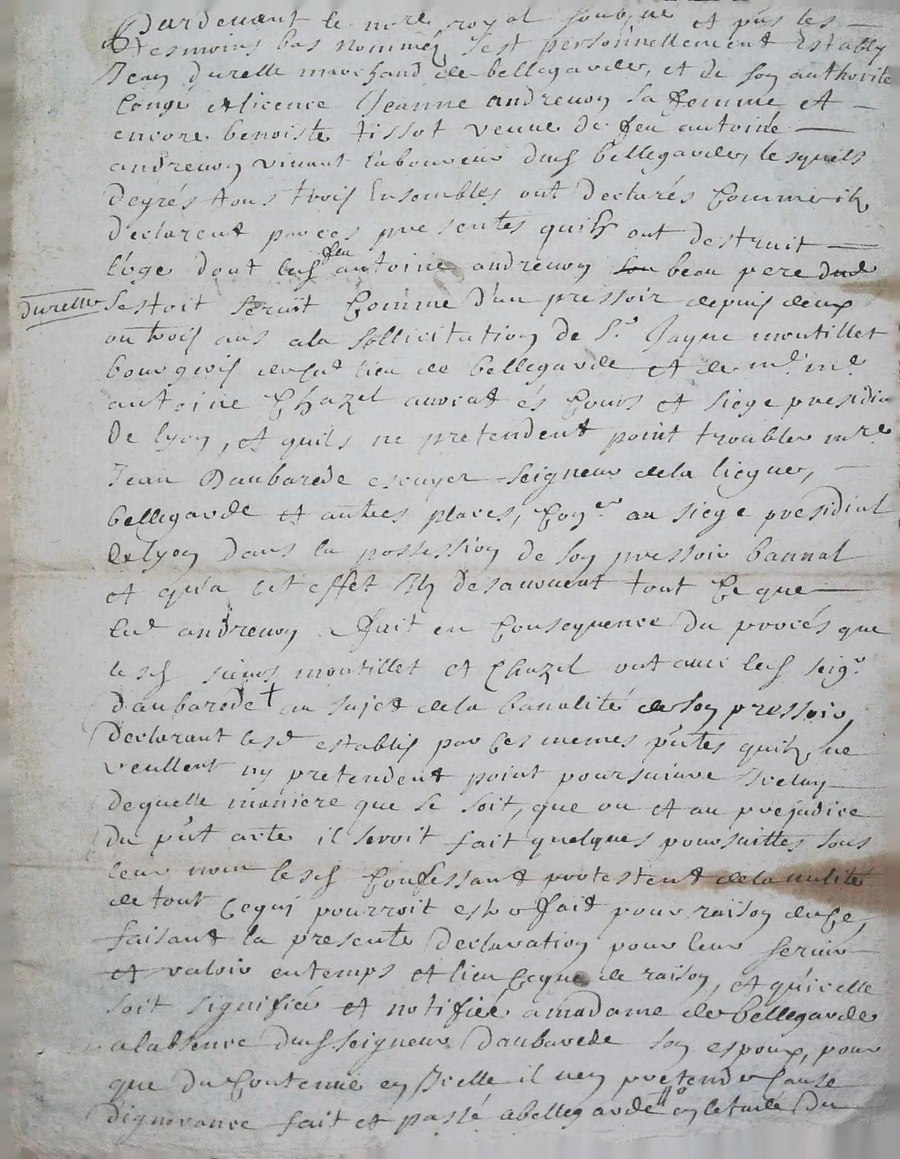 Pardevant le no.re royal soub.ne et pnts les
tesmoins bas nommés s'est personnellement estably
Jean durelle marchand de bellegarde, et de son authorité
Congé et licence Jeanne andrevon sa femme et
encore benoiste tissot veuve de feu antoine
andrevon vivant laboureur dud bellegarde, lesquels
degrés tous trois Ensembles ont declarés Comme ils
declarent par ces presentes quils ont destruit
loge dont led feu antoine andrevon beau pere
durelle
sestoit servit Comme d'un pressoir depuis deux
ou trois ans ala sollicitation de Sr Jayme moutillet
bourgeois dud lieu de bellegarde et de mr me
antoine Chazel avocat és Cours et siege presidia
de lyon, et quils ne pretendent point troubler mre
Jean Daubarede escuyer seigneur dela liegue,
bellegarde et autres places, Con.er au siege presidial
de lyon dans la possession de son pressoir bannal
et qua cet effet Ils desavouent tout Ce que
led andrevon a fait en Consequence du procés que
lesd sieurs moutillet et Chazel ont avec led seigr
daubarede + au sujet dela banalité de son pressoir,
declarant lesd establis par ces memes pntes quils ne
veullent ny pretendent point poursuivre Iceluy
dequelle maniere que Ce soit, que ou et au prejudice
du pnt acte il seroit fait quelques poursuittes sous
leur nom lesd Confessant protestent dela nulité
de tout Cequi pourroit estre fait pour raison de Ce,
faisant la presente declaration pour leur servir
et valoir en temps et lieu Ceque de raison, et quicelle
soit signifiée et notifiée a madame de bellegarde
alabsence dud seigneur daubarede son espoux, pour
que du Contenue en Icelle il nen pretende Cause
dignorance fait et passé abellegarde en letude du